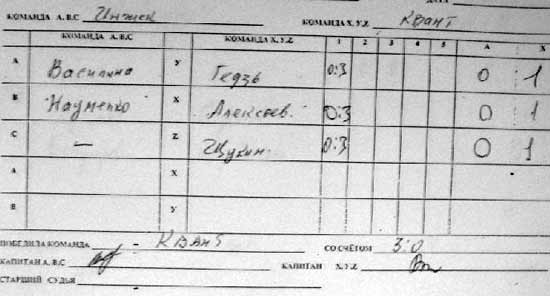 КОМАНДА А.В.С Инжек КОМАНДА Х.У.Z Квант
КОМАНДА А.В.С КОМАНДА Х.У.Z 1 2 3 4 5 А Х
А Василина У Гедзь 0:3 0 1
В Науменко Х Алексеев. 0:3 0 1
С — Z Щукин 0:3 0 1
А Х
В У
ПОБЕДИЛА КОМАНДА - КВАНТ СО СЧЁТОМ 3:0
КАПИТАН А.В.С КАПИТАН Х.У.Z
СТАРШИЙ СУДЬЯ